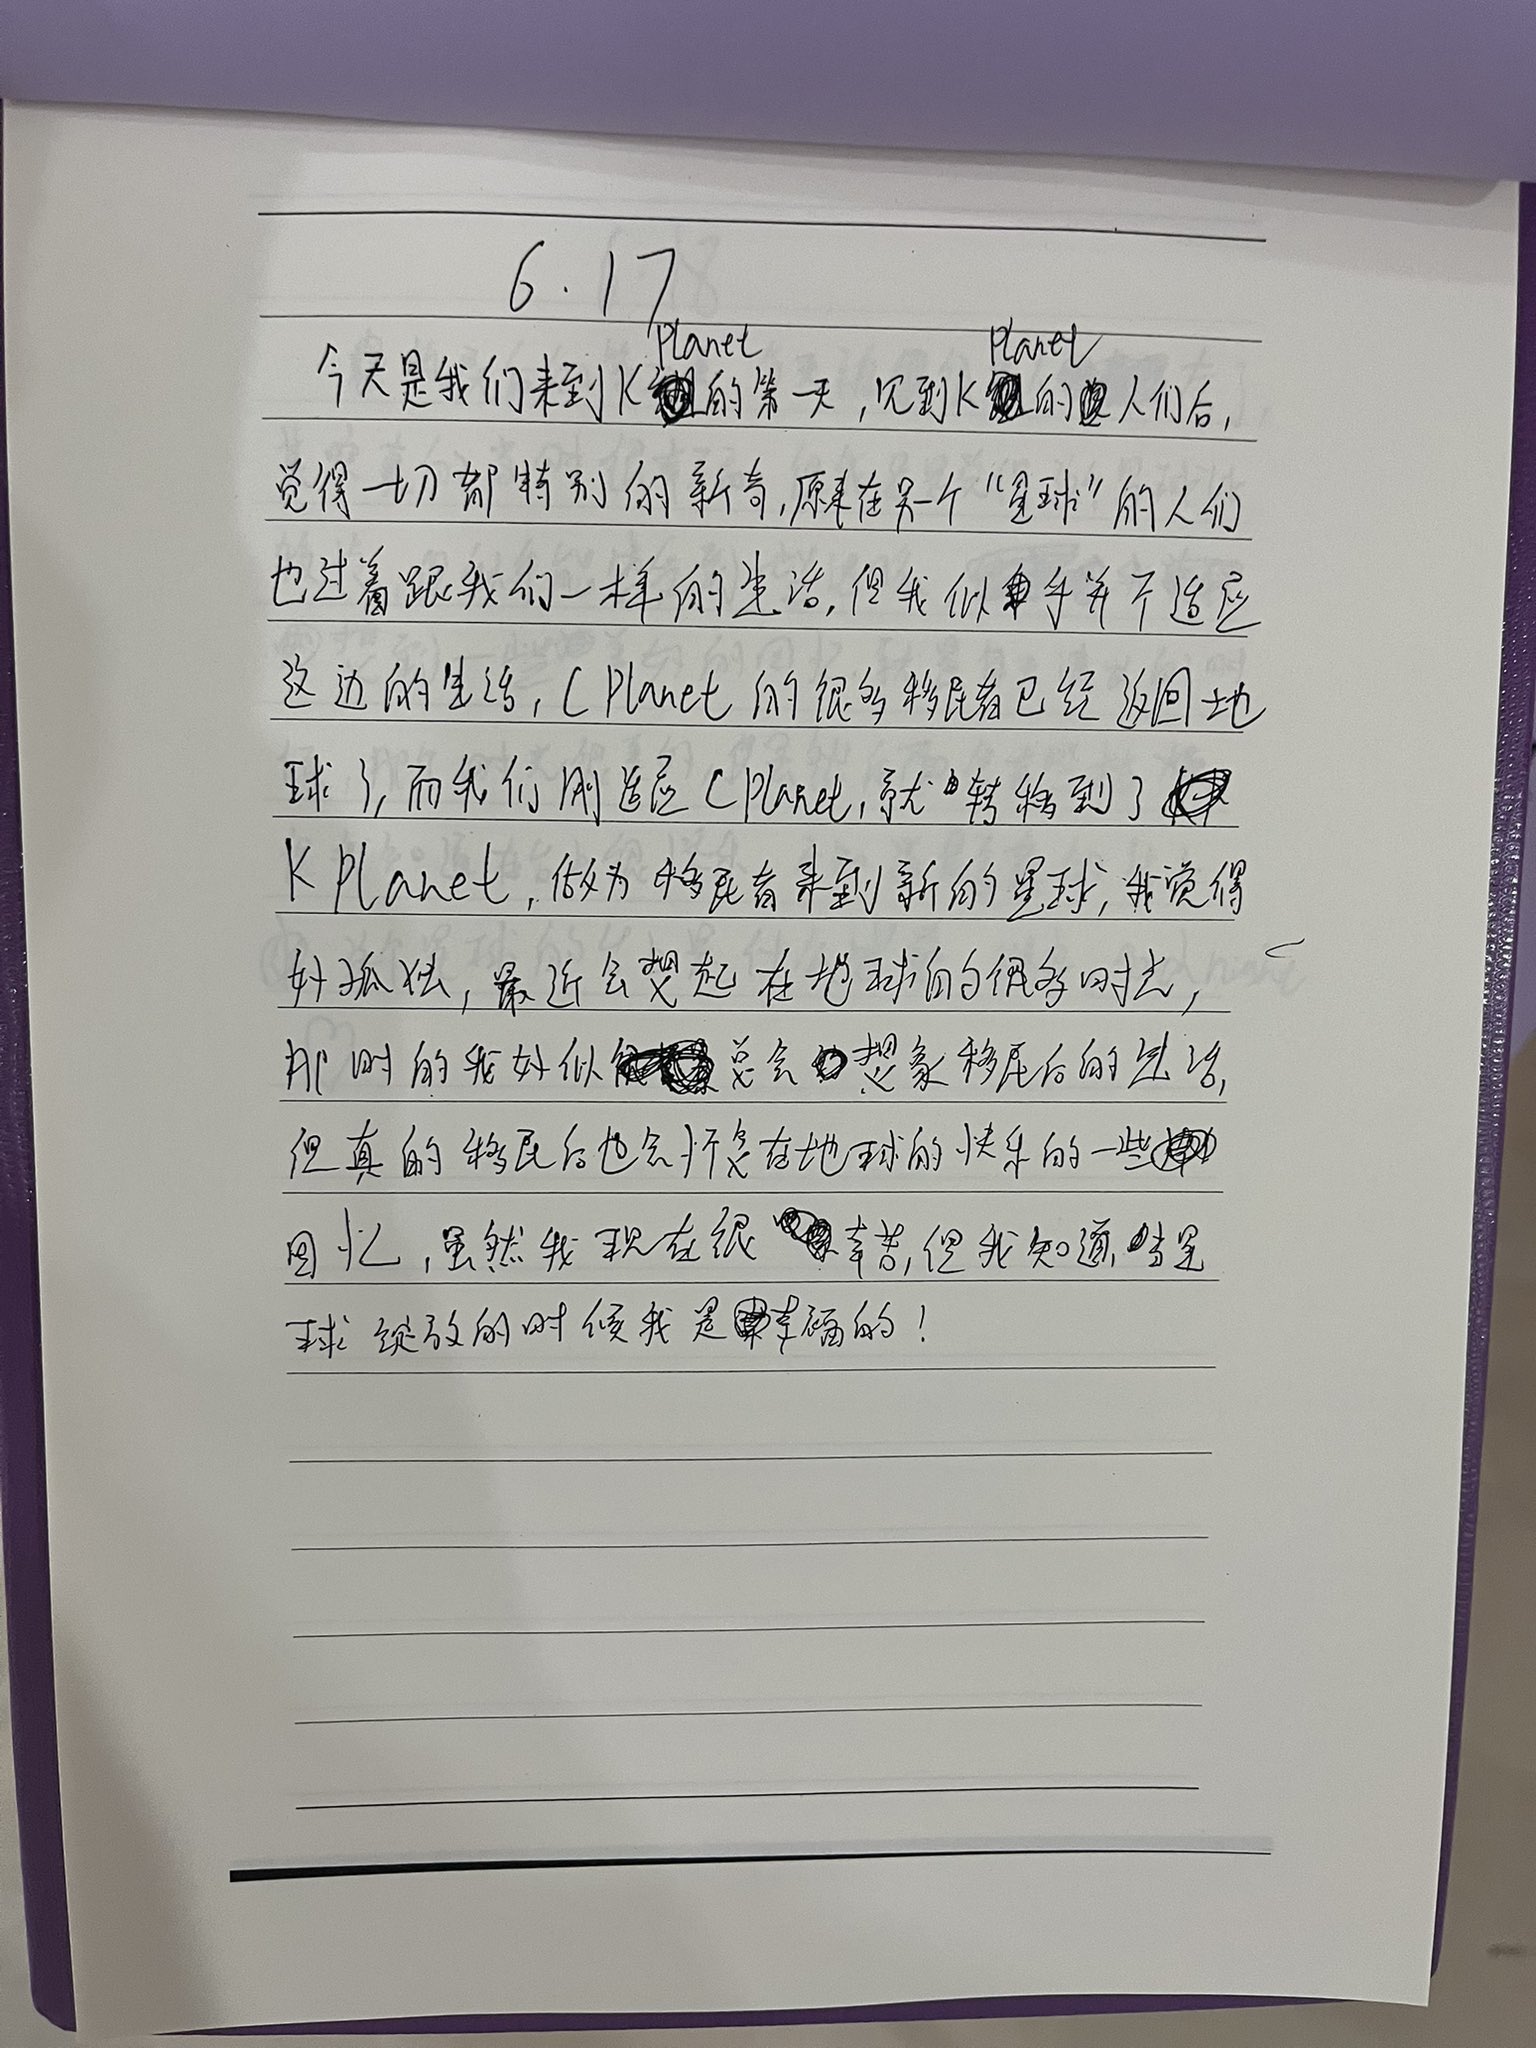 6.17
Planet Planet
今天是我们来到K的第一天，见到K的人们后，
觉得一切都特别的新奇，原来在另一个“星球”的人们
也过着跟我们一样的生活，但我似乎并不适应
这边的生活，C Planet 的很多移民者已经返回地
球了，而我们刚适应C Planet，就转移到了
K Planet，做为移民者来到新的星球，我觉得
好孤独，最近会想起在地球的很多时光，
那时的我好似总会想象移民后的生活，
但真的移民后也会怀念在地球的快乐的一些
回忆，虽然我现在很辛苦，但我知道，当星
球绽放的时候我是幸福的！